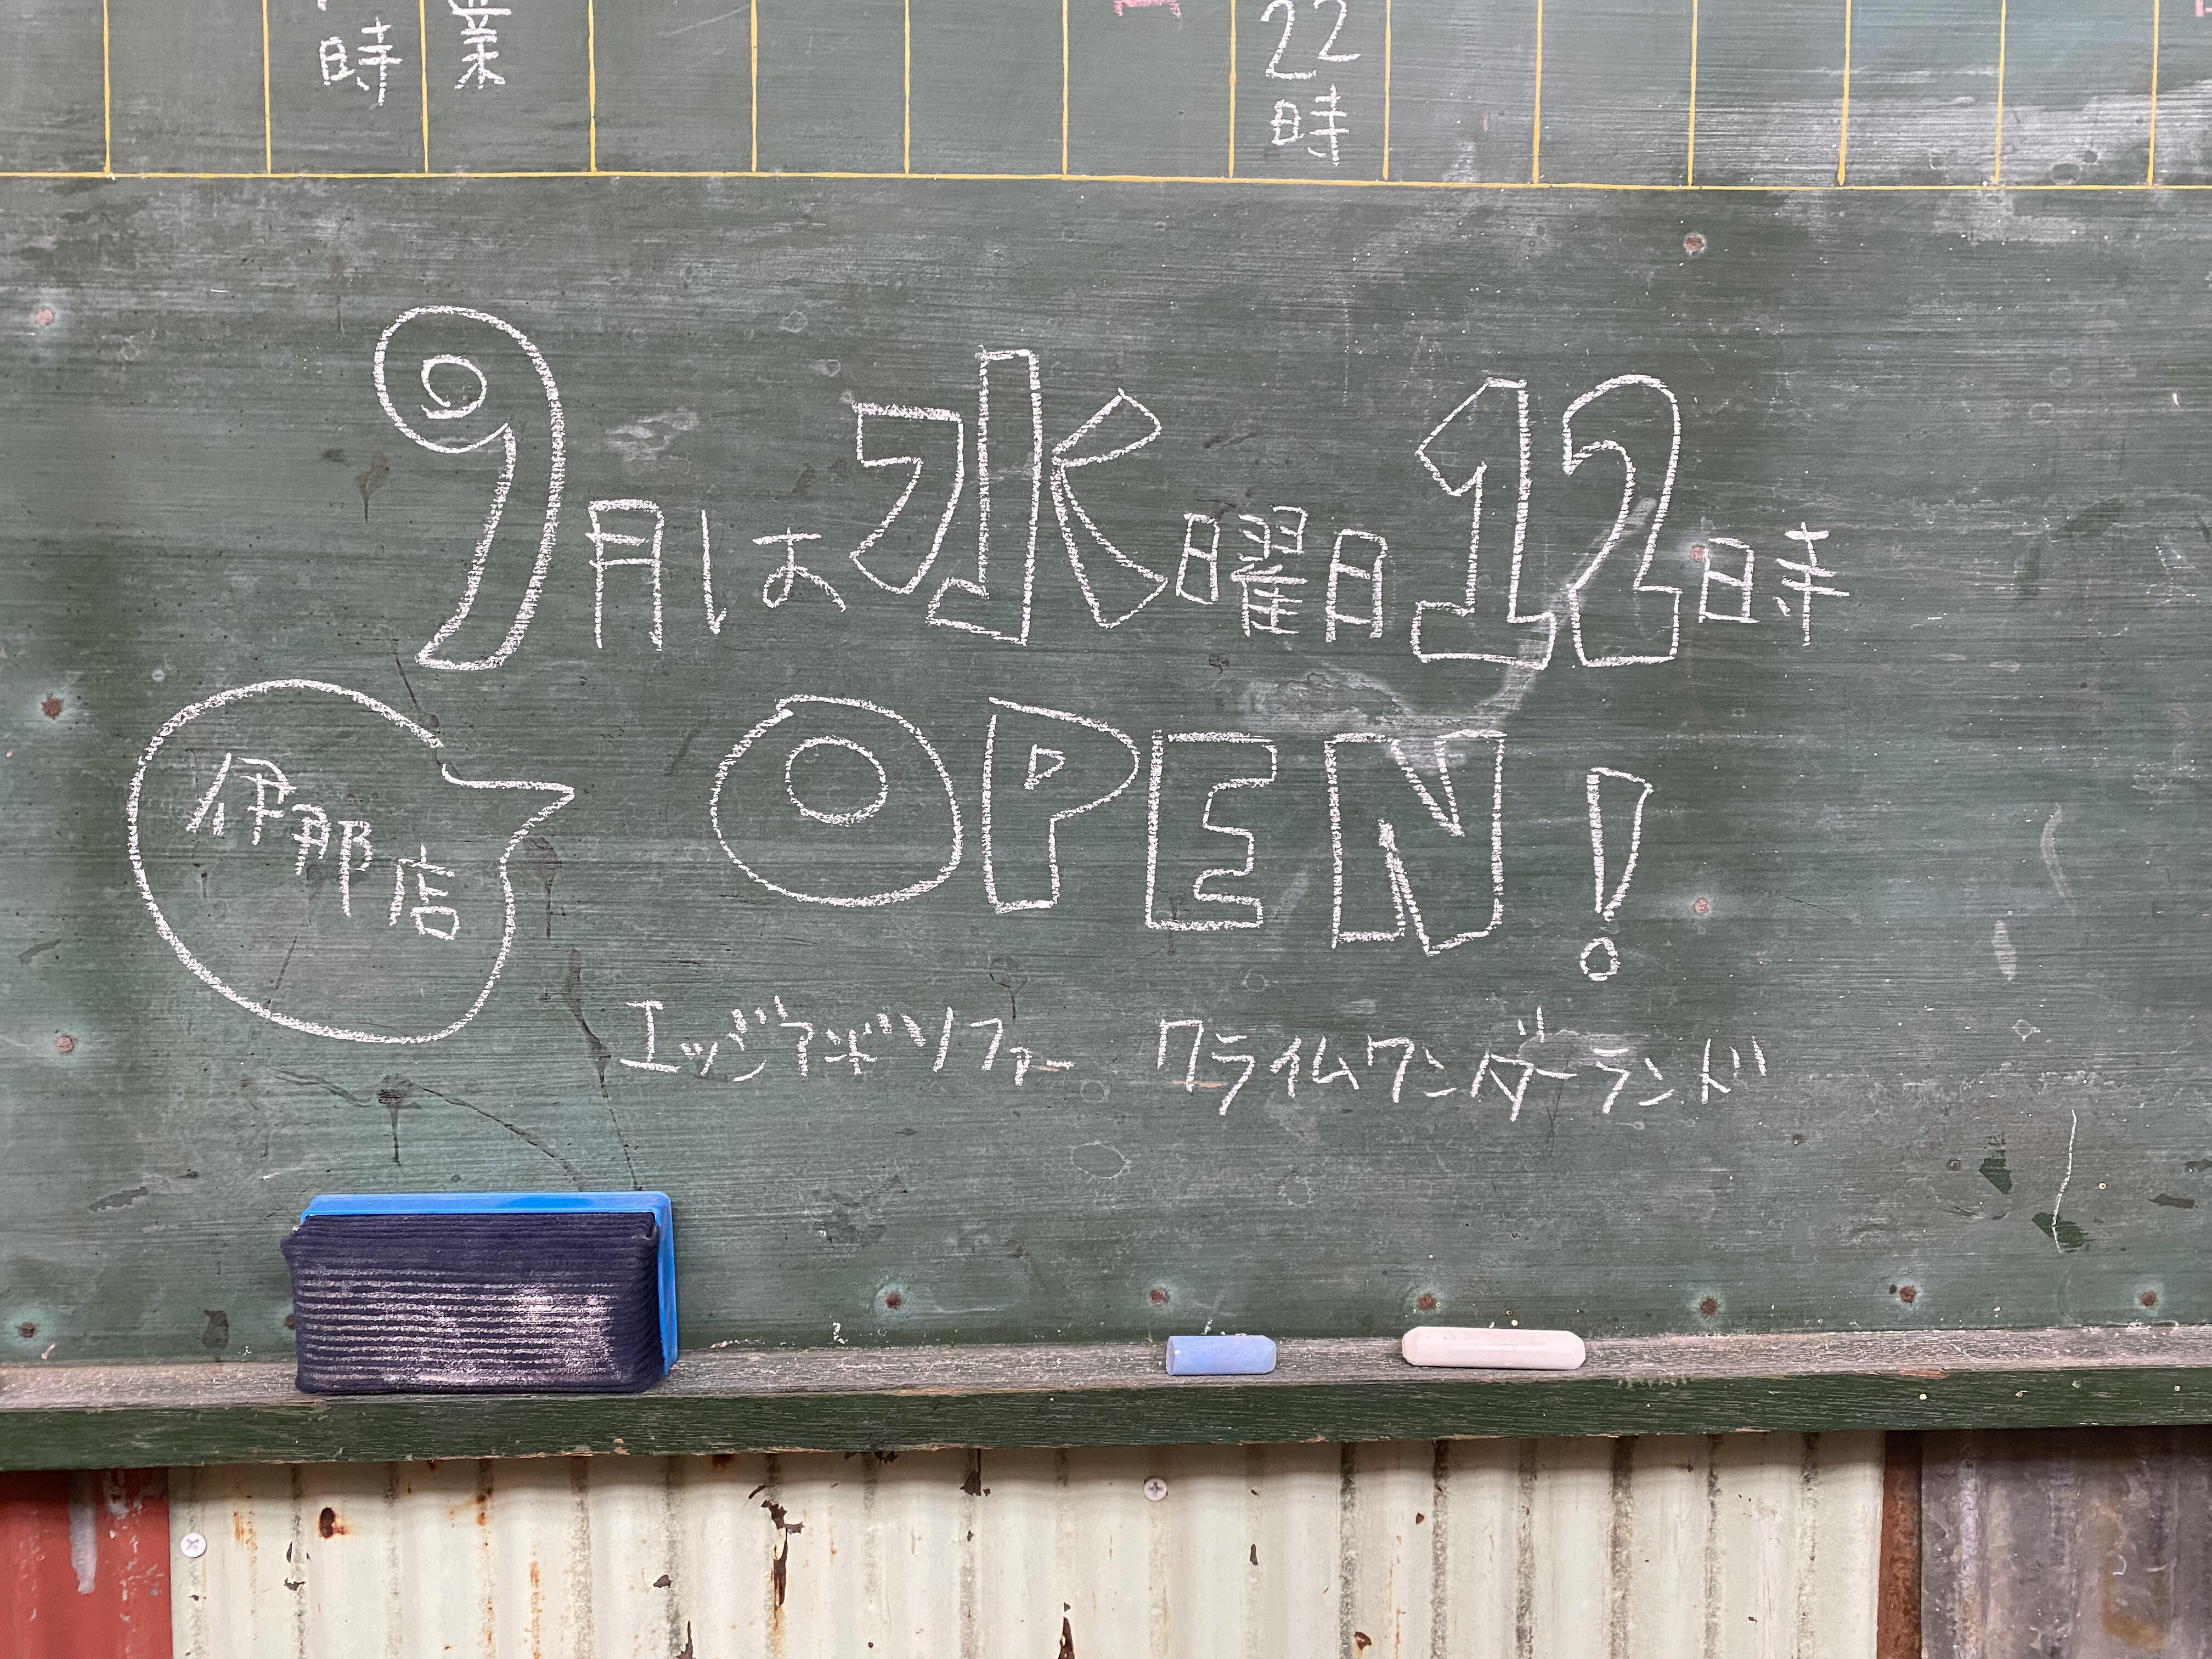 時
業
22時
9月は水曜日12時
伊那店
OPEN!
エッジアボソファー クライムワンダーランド